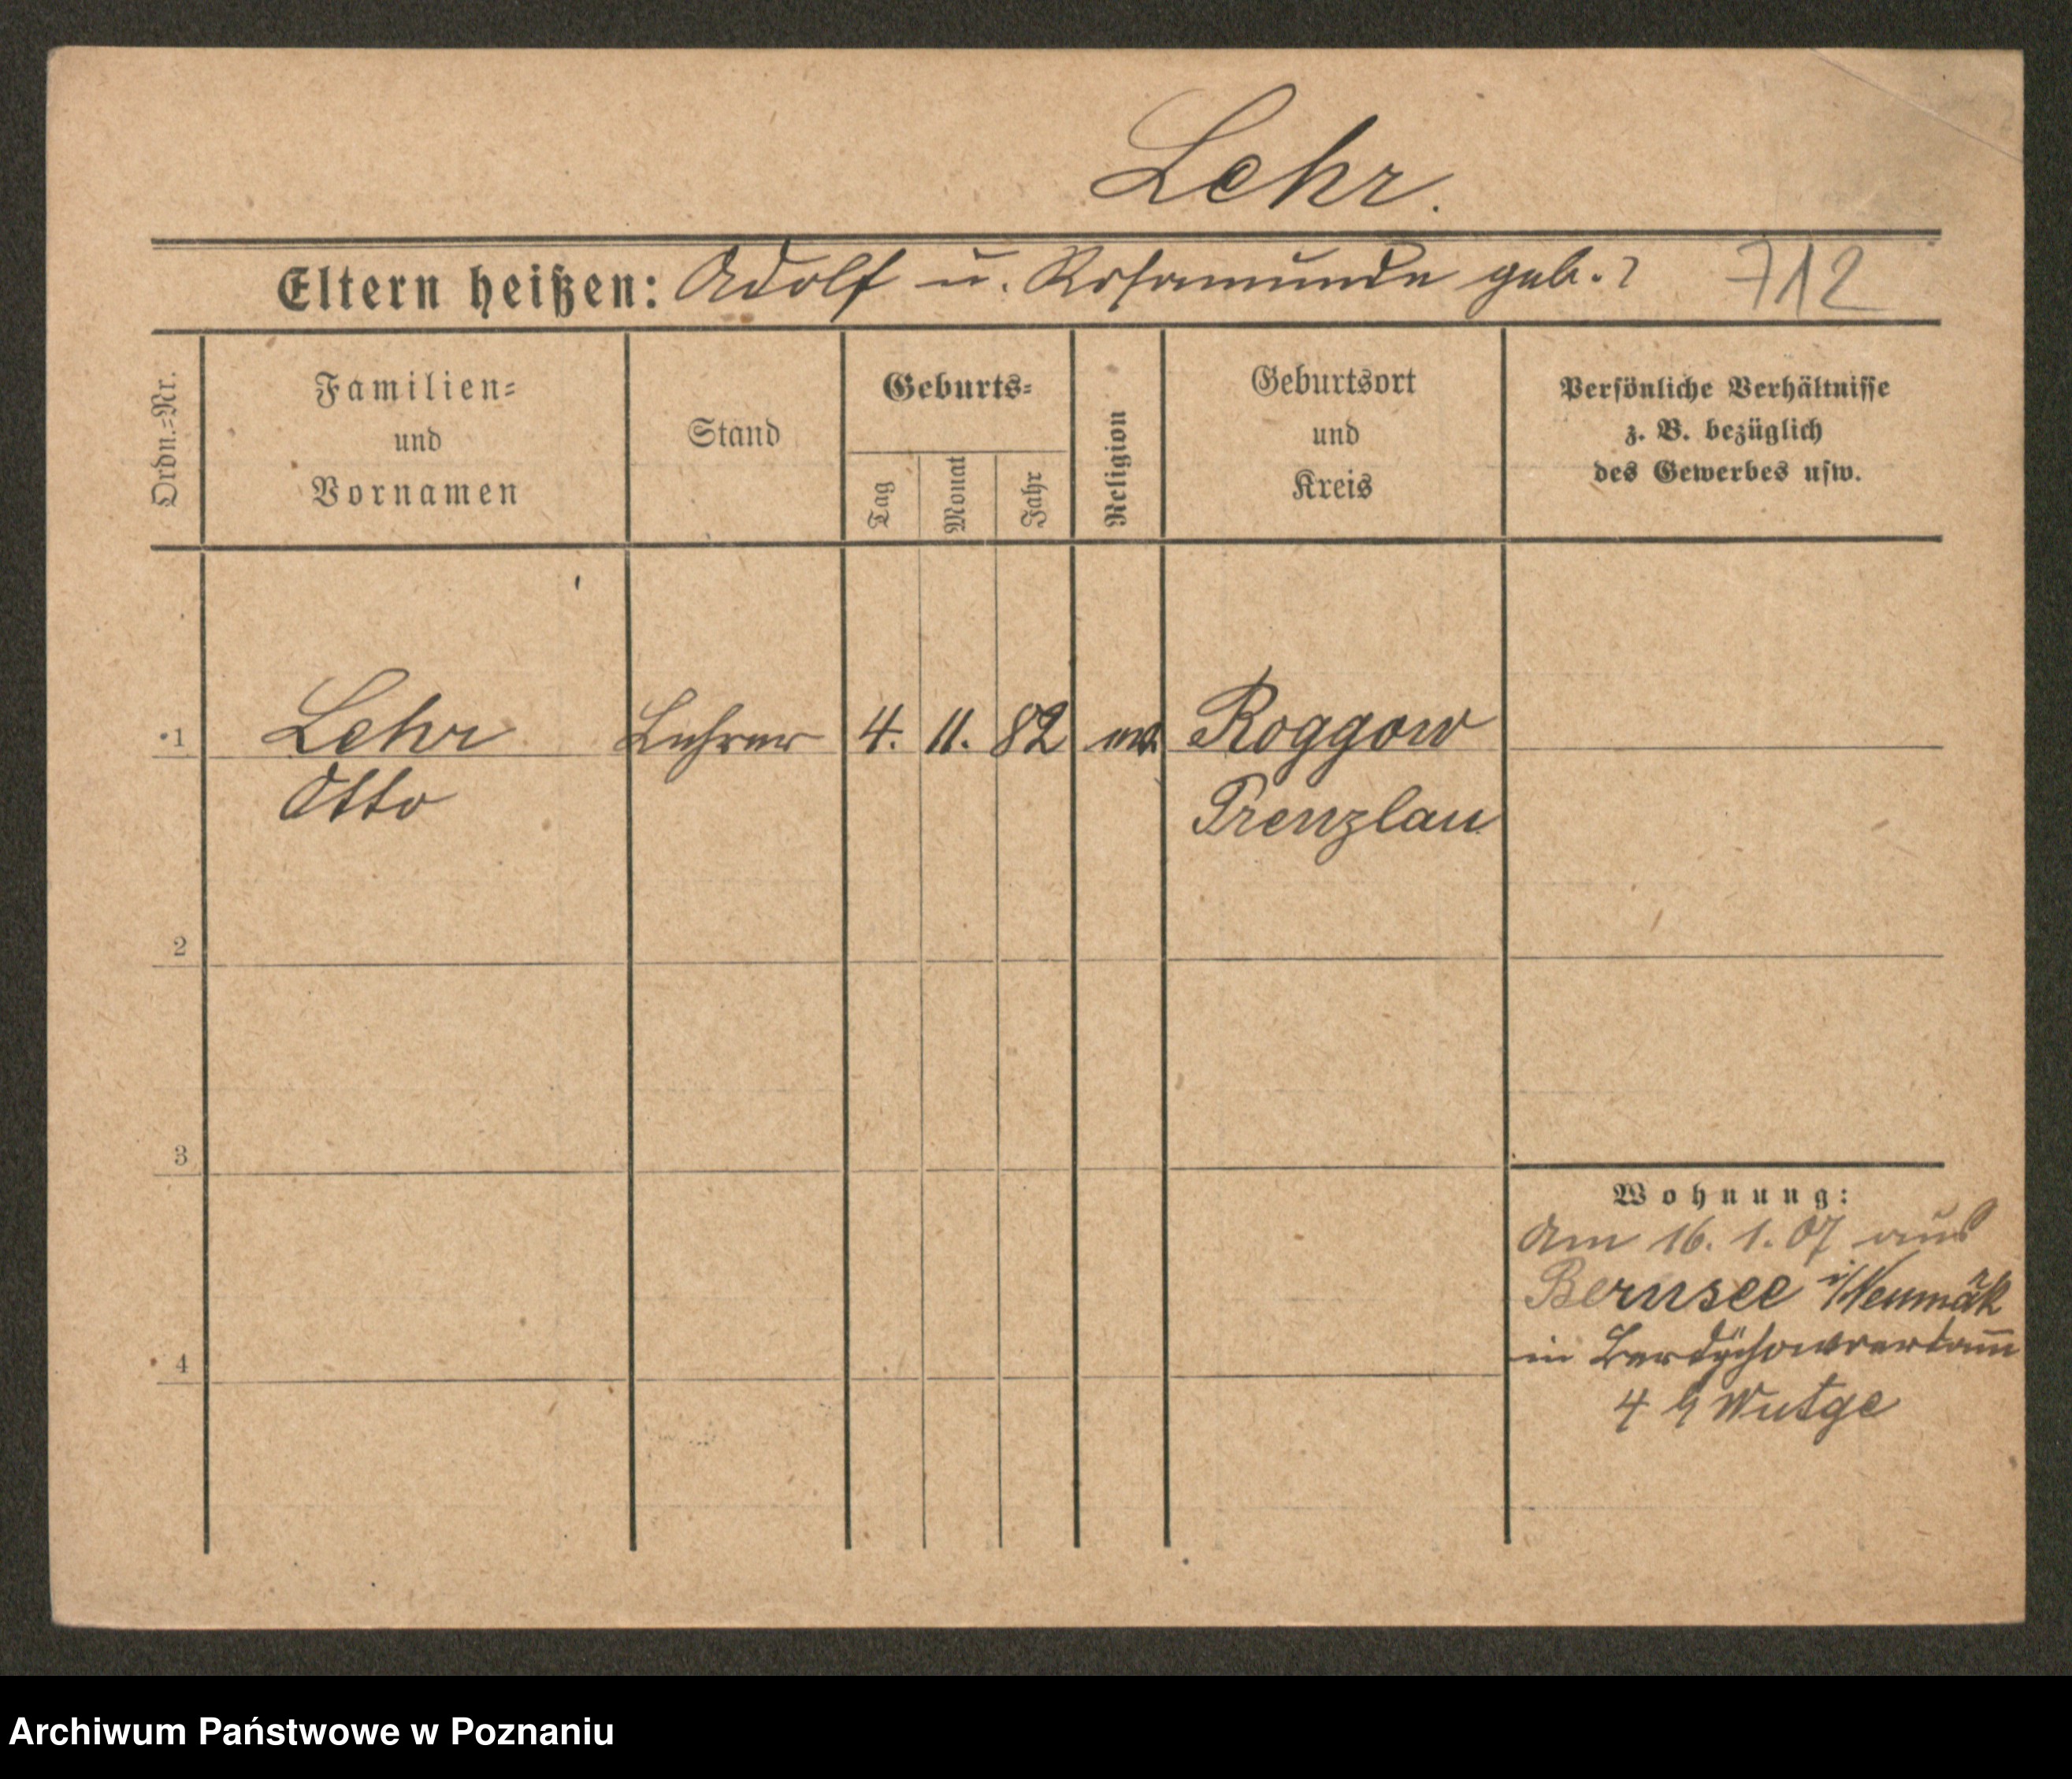 Lehr.
Eltern heißen: Adolf u. Rosamunde geb. ? 712
Ordn.=Nr.
Familien=
und
Vornamen
Stand
Geburts=
Tag
Monat
Jahr
Religion
Geburtsort
und
Kreis
Persönliche Verhältnisse
z. B. bezüglich
des Gewerbes usw.
1 Lehr Lehrer 4. 11. 82 ev. Roggow
Otto Prenzlau
2
3
4
Wohnung:
Am 16. 1. 07 aus
Bernsee i/Neumäk
in
4 Wutge
Archiwum Państwowe w Poznaniu